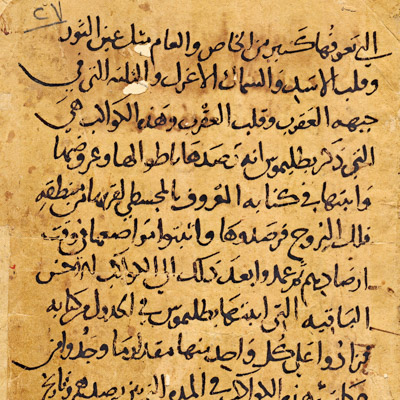 ٤٧
التي تعرفها كثير من الخاص والعام مثل عين الثور
وقلب الاسد والسماك الاعزل والثلثة التي في
جبهه العقرب وقلب العقرب وهذه الكواكب هي
التي ذكر بطلميوس انه رصدها باطوالها وعروضها
واثبتها في كتابه المعروف بالمجسطي لقربها من منطقه
فلك البروج فرصدوها واثبتوا مواضعها في وقت
ارصادهم ثم عمدوا بعد ذلك الى الكواكب
الباقيه التي اثبتها بطلميوس في الجدول من كتابه
فزادوا على كل واحد منها مقدار ما وجدوا من
هذه الكواكب في المده التي بين رصدهم وتاريخ